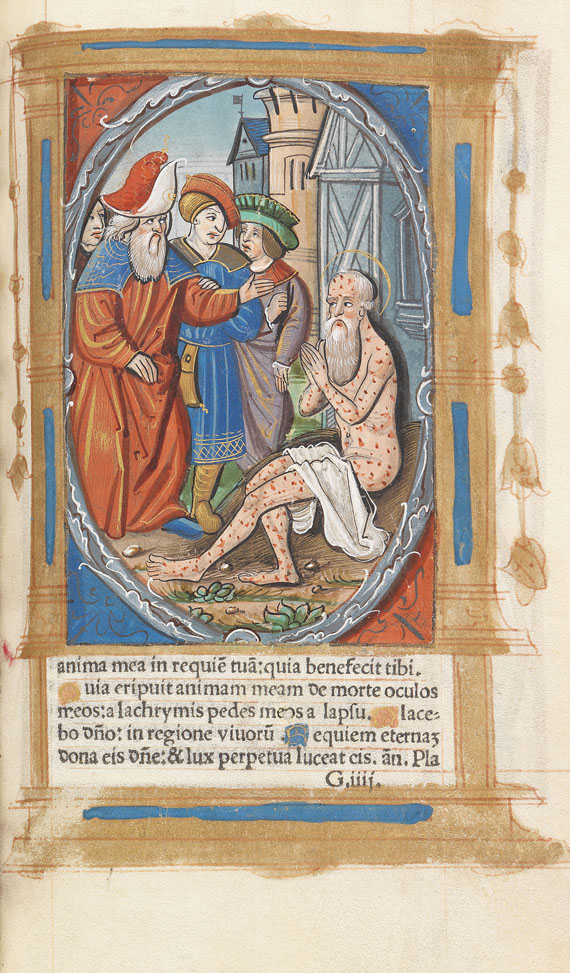 anima mea in requiē tuā: quia benefecit tibi.
uia eripuit animam meam de morte oculos
meos: a lachrymis pedes meos a lapsu. lace-
bo dño: in regione viuorū. equiem eternaꝫ
dona eis dñe: & lux perpetua luceat eis. añ. Pla
G.iiij.